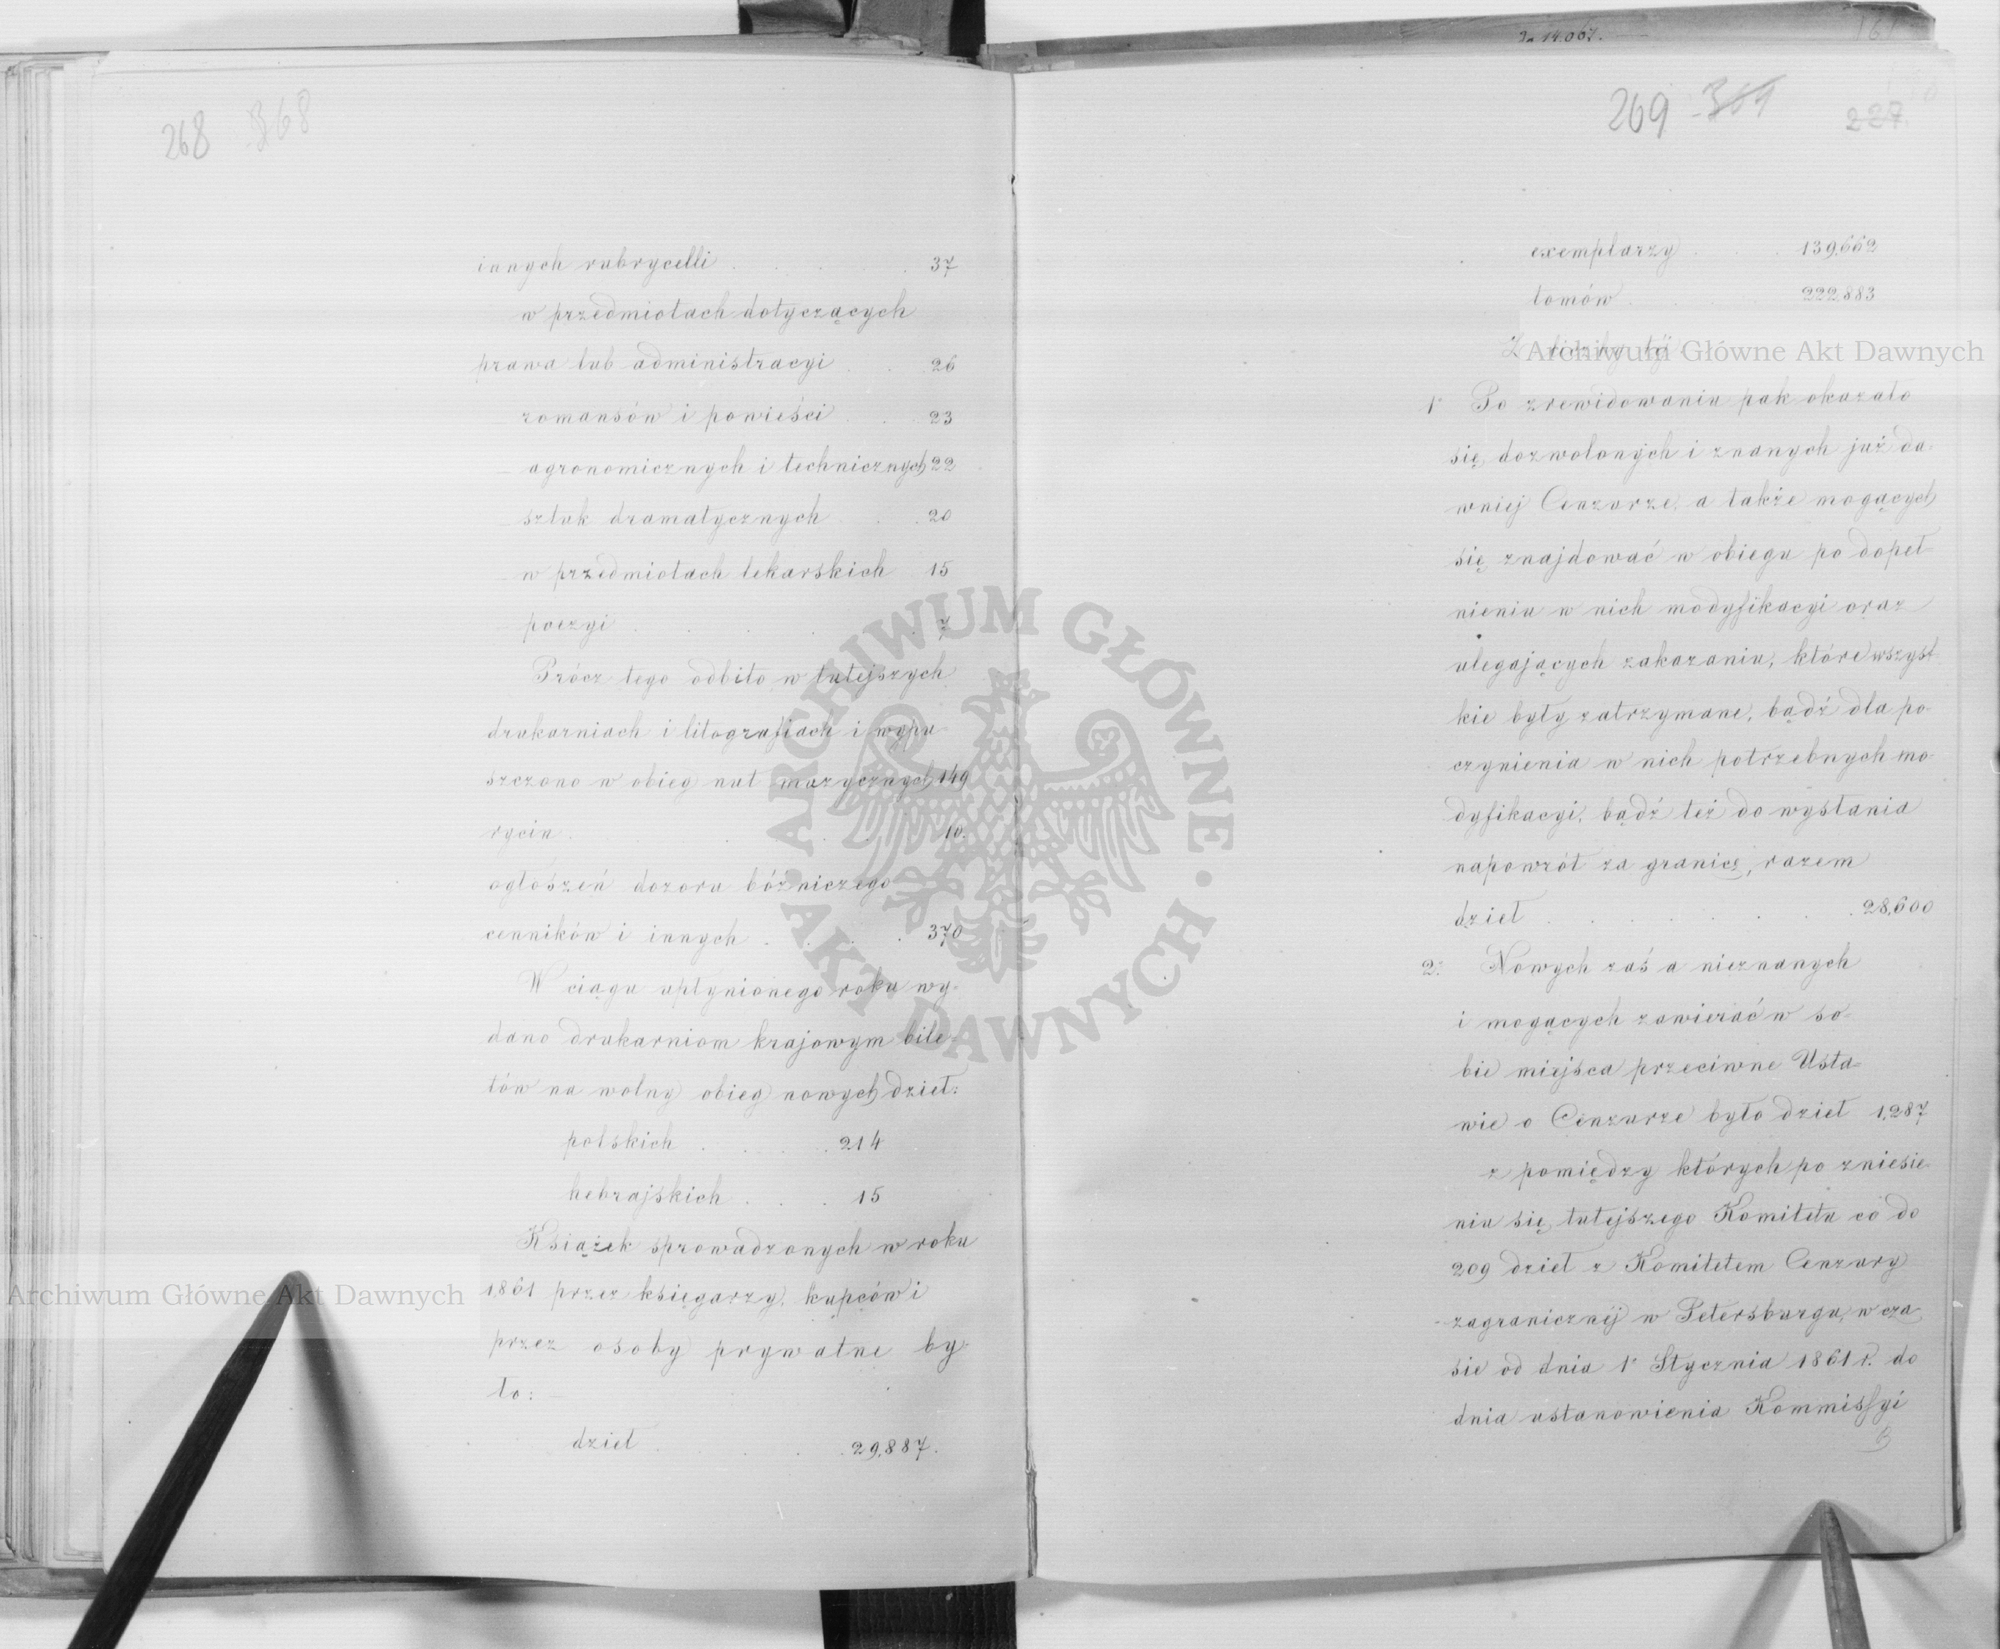 268 368
innych rubrycelli . . . . 37
w przedmiotach dotyczących
prawa lub administracyi . . 26
romansów i powieści . . . 23
agronomicznych i technicznych 22
sztuk dramatycznych . . 20
w przedmiotach lekarskich 15
poezyi . . . . 7
Prócz tego odbito w tutejszych
drukarniach i litografiach i wypu-
szczono w obieg nut muzycznych 149
rycin . . . . 10.
ogłoszeń dozoru bóżniczego
cenników i innych . . . . 370
W ciągu upłynionego roku wy-
dano drukarniom krajowym bile-
tów na wolny obieg nowych dzieł:
polskich . . . . 214
hebrajskich . . . 15
Książek sprowadzonych w roku
1861 przez księgarzy, kupców i
przez osoby prywatne by-
ło:
dzieł . . . . 29,887.
14.067.
161
269 369
227
exemplarzy . . . 139,662
tomów . . . . 222,883
Z liczby téj
1° Po zrewidowaniu pak okazało
się dozwolonych i znanych już da-
wniej Cenzurze, a także mogących
się znajdować w obiegu po dopeł-
nieniu w nich modyfikacyi oraz
ulegających zakazaniu, które wszyst-
kie były zatrzymane, bądź dla po-
czynienia w nich potrzebnych mo-
dyfikacyi, bądź też do wysłania
napowrót za granicę, razem
dzieł . . . . . . . 28,600
2° Nowych zaś a nieznanych
i mogących zawierać w so-
bie miejsca przeciwne Usta-
wie o Cenzurze było dzieł 1,287
z pomiędzy których po zniesie-
niu się tutejszego Komitetu co do
209 dzieł z Komitetem Cenzury
zagranicznéj w Petersburgu, w cza-
sie od dnia 1° Stycznia 1861 r. do
dnia ustanowienia Kommissyi
Archiwum Główne Akt Dawnych
Archiwum Główne Akt Dawnych
ARCHIWUM GŁÓWNE AKT DAWNYCH